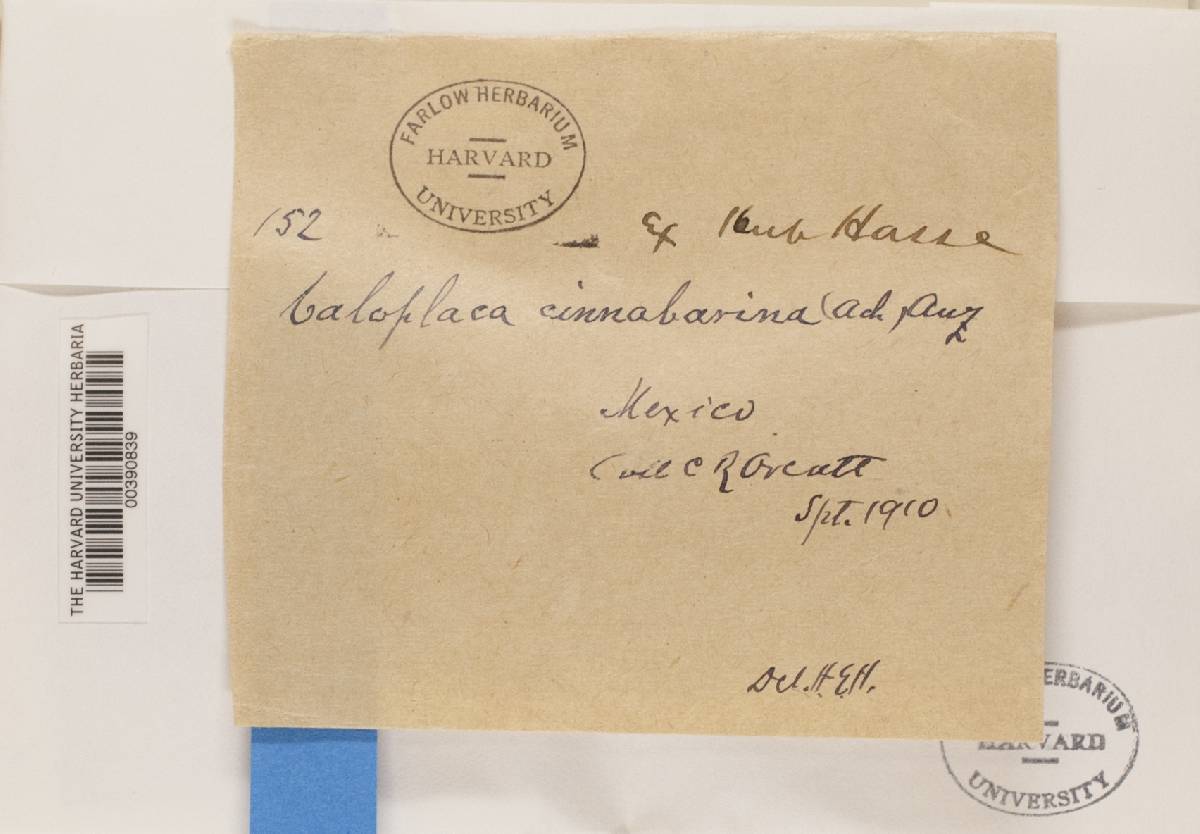 FARLOW HERBARIUM
HARVARD
UNIVERSITY
152 Ex Herb Hasse
Caloplaca cinnabarina (Ach) Anz
Mexico
Coll C R Orcutt
Spt. 1910
Det. H.E.H.
THE HARVARD UNIVERSITY HERBARIA
00390839
ERBARIUM
HARVARD
UNIVERSITY